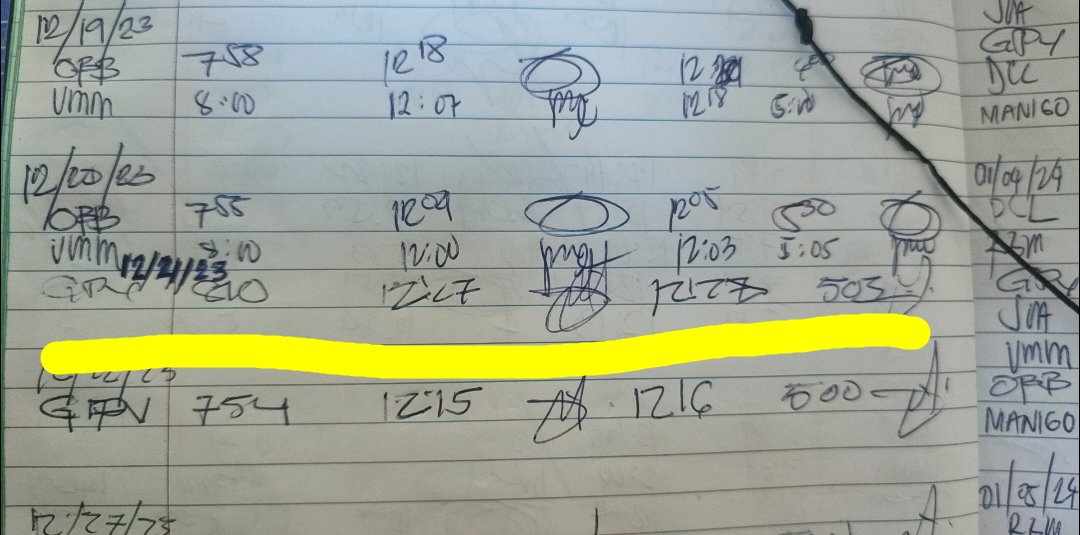 12/19/23
OBB 7 58 12 18 12
VMM 8:00 12:07 12 18 5:00
12/20/23
OBB 7 55 12 09 12 05 5 30
VMM 8:00 12:00 12:03 5:05
12/21/23
12:27 12:27 505
GPV 754 12:15 1216 500
12/27/23
JVA
GPY
DCL
MANIGO
01/04/24
DCL
RZM
GPY
JVA
VMM
OBB
MANIGO
01/05/24
RZM